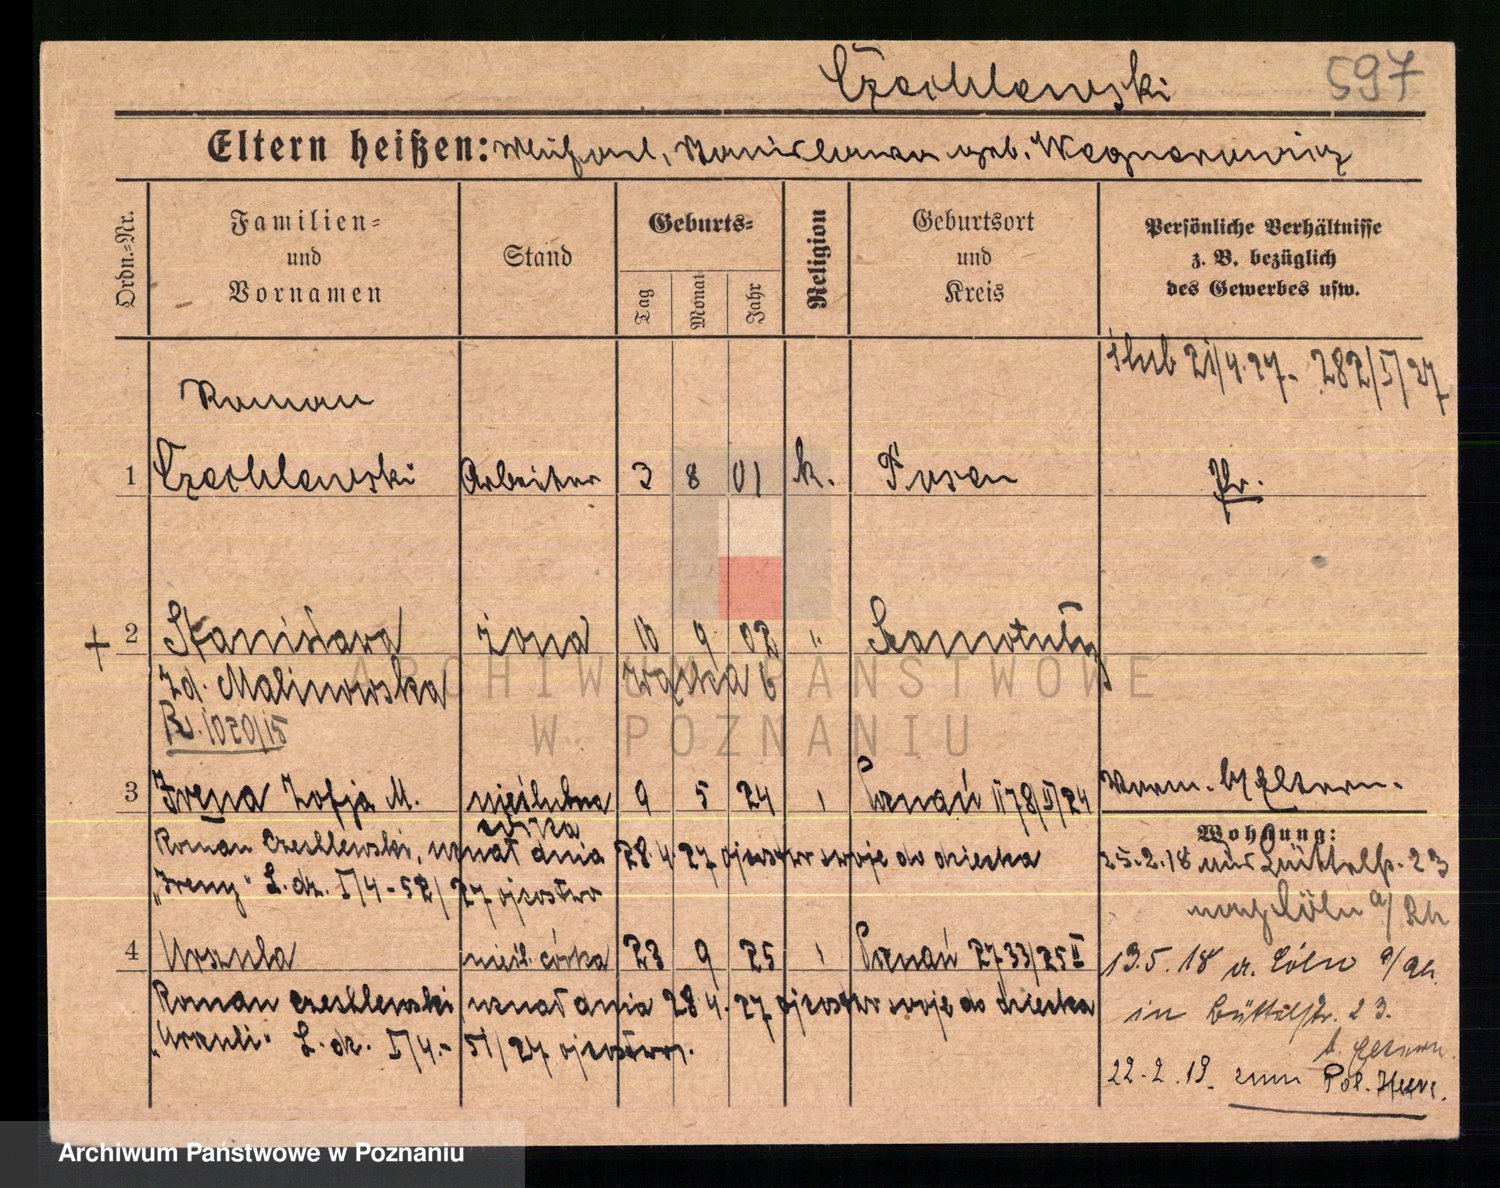 Czechlewski 597
Eltern heißen: Michael, Stanislawa geb. Wegnerowicz
Ordn.-Nr.
Familien-
und
Vornamen
Stand
Geburts-
Tag
Monat
Jahr
Religion
Geburtsort
und
Kreis
Persönliche Verhältnisse
z. B. bezüglich
des Gewerbes usw.
ślub 21/4.27- 282/I/27
Roman
1 Czechlewski Arbeiter 3 8 01 k. Posen Pr.
+ 2 Stanisława żona 10 9 02 " Szamotuły
zd. Malinowska
1050/15
3 Irena Zofja M. nieślubna 9 5 24 Poznań 1178/II/24
córka
Roman Czechlewski, uznał dnia 28 4 27 ojcostwo swoje do dziecka
„Ireny" L.dz. I/4-52/27 ojcostwo
Vorm. b/ Eltern.
Wohnung:
25.2.18 23
Cöln a/Rh
4 Urszula nieśl. córka 23 9 25 Poznań 2733/25 II
Roman Czechlewski uznał dnia 28 4. 27 ojcostwo swoje do dziecka
„Urszuli" L.dz. I/4.- 51/27 ojcostwo.
13.5.18 v. Cöln a/Rh.
in 23.
22.2.19. zum Pol. Heere.
ARCHIWUM PAŃSTWOWE
W POZNANIU
Archiwum Państwowe w Poznaniu